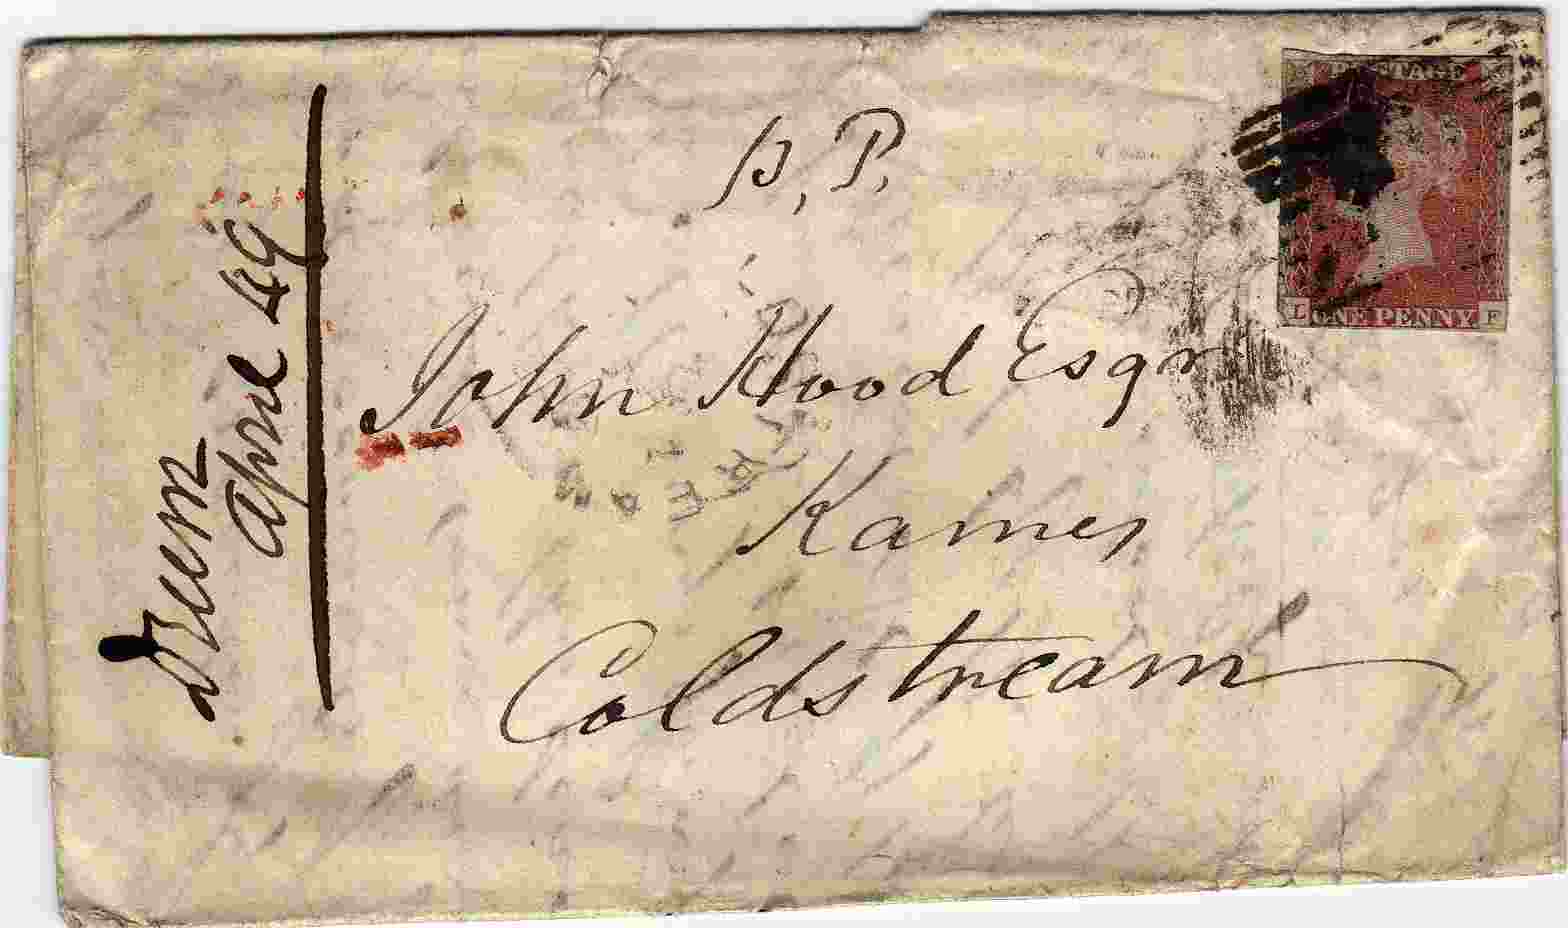 p, P,
John Hood Esqr
Kames
Coldstream
Drum
April 49
POSTAGE
L ONE PENNY F